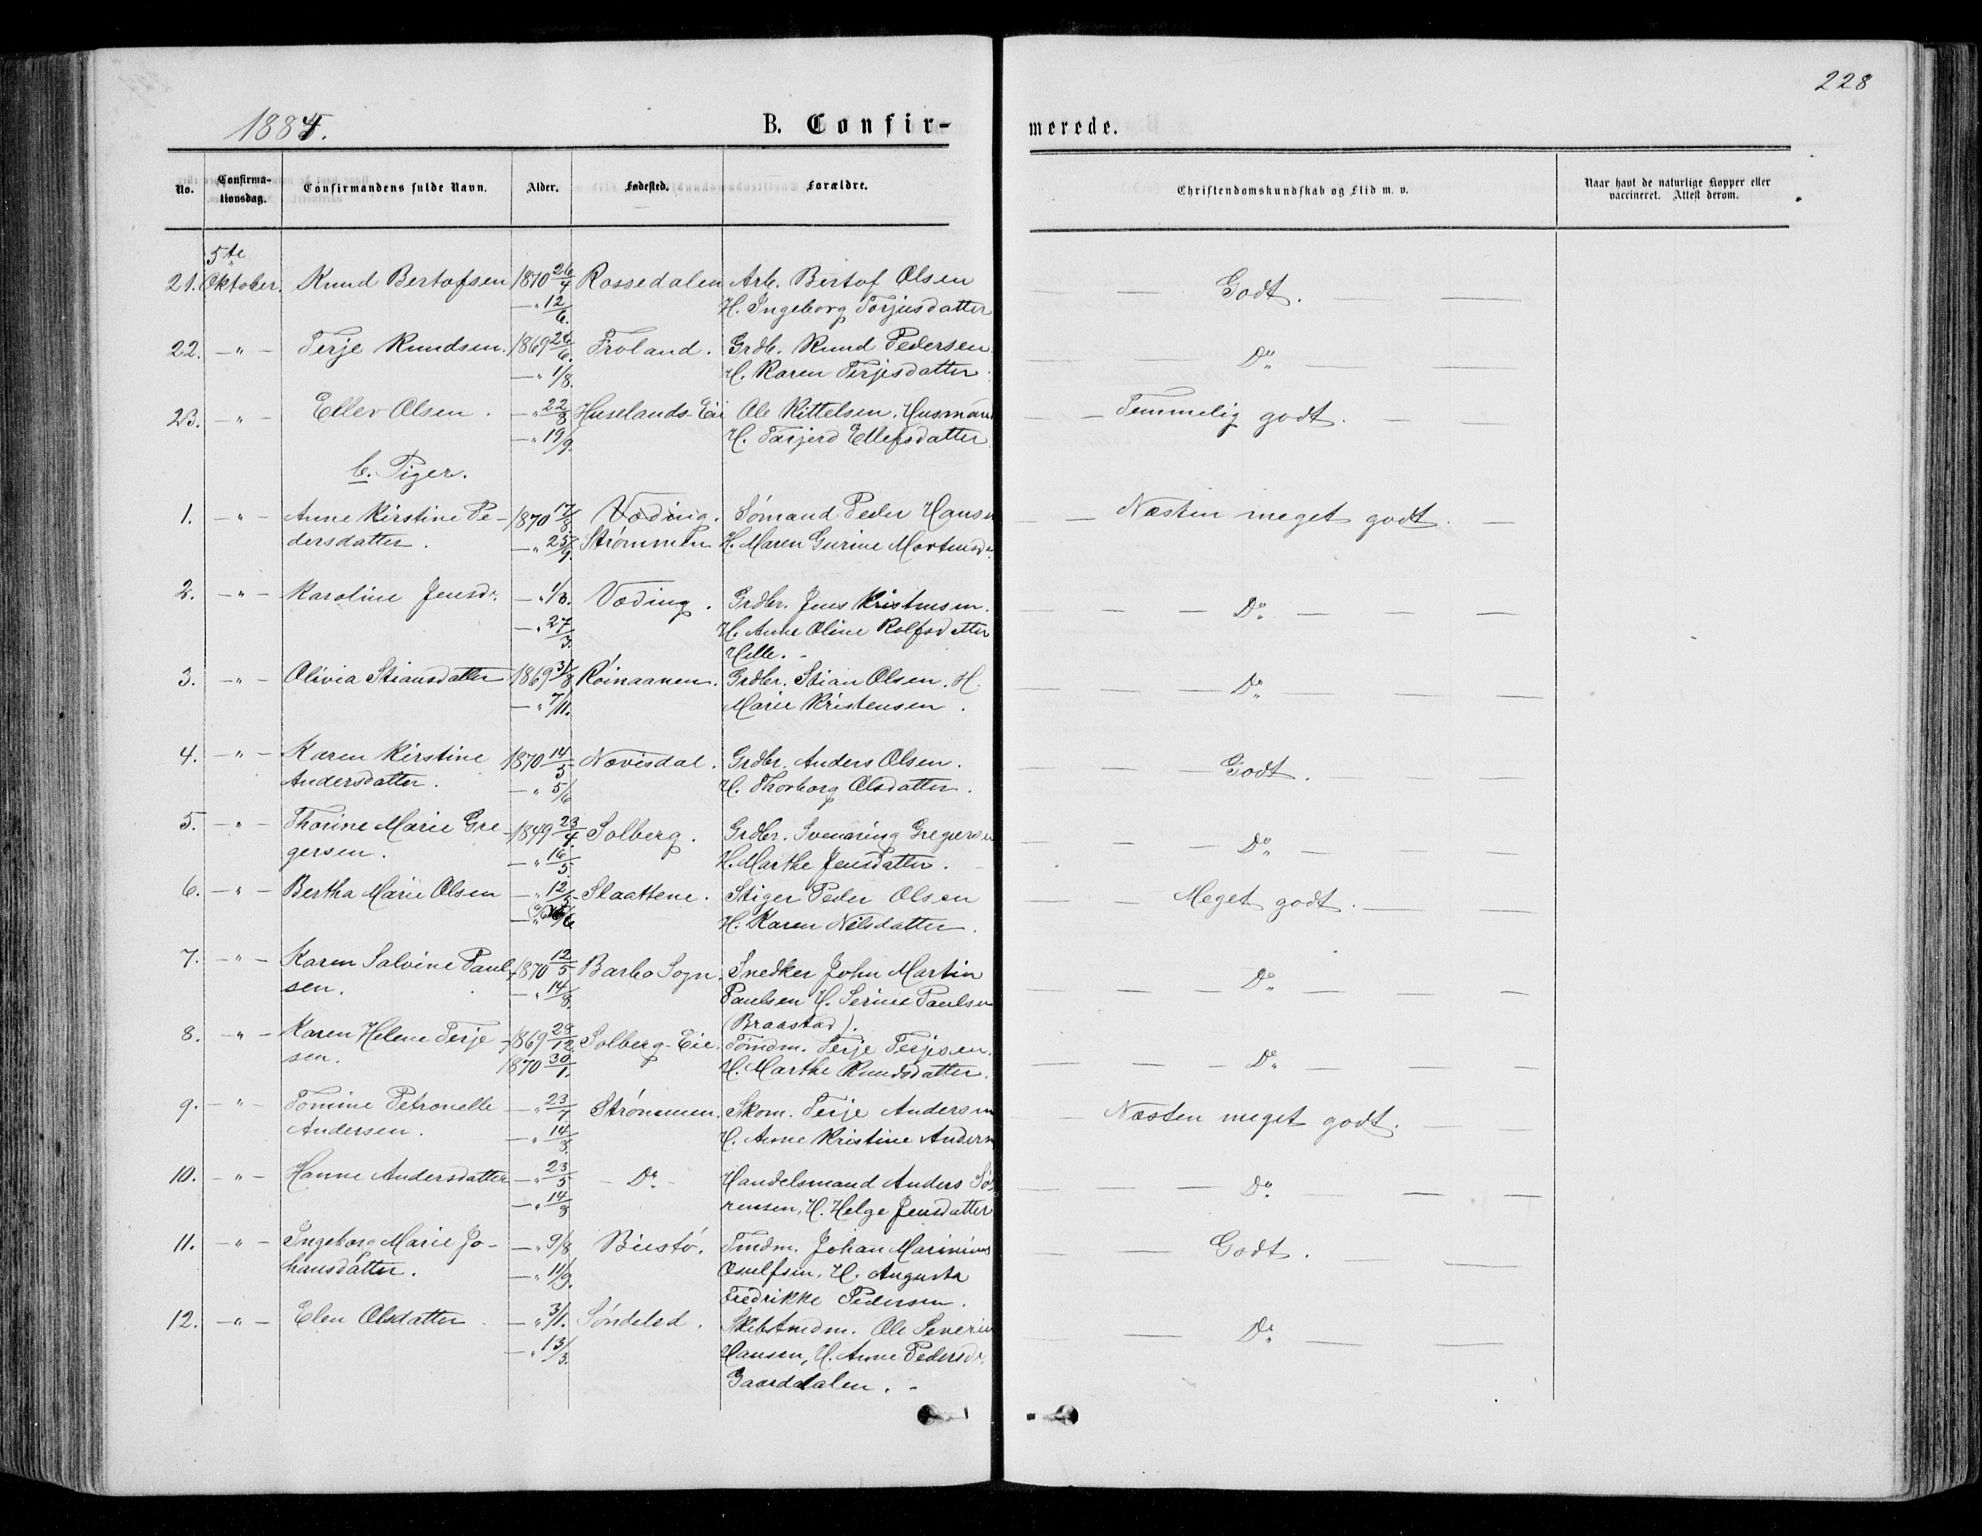 228
1884.
B. Confir-
merede.
No.
Confirma-
tionsdag.
Confirmandens fulde Navn.
Alder.
Fødested.
Forældre.
Christendomskundskab og Flid m. v.
Naar havt de naturlige Kopper eller
vaccineret. Attest derom.
5te
21. Oktober. Knud Bertofsen 1870 26/4 Rossedalen Arb. Bertof Olsen — — Godt. — —
— " 12/6. H. Ingeborg Torjusdatter
22. — " — Terje Knudsen. 1869 26/6. Froland. Grdb. Knud Pedersen — — Do — —
— " 1/8. H. Karen Terjesdatter
23. — " — Ellev Olsen. — " 22/8 Huselands Eie Ole Kittelsen, Husmand — — Temmelig godt. — —
— " 19/9. H. Tarjerd Ellefsdatter
b. Piger.
1. — " — Anne Kirstine Pe- 1870 17/8 Væding. Sømand Peder Hansen — — Næsten meget godt. —
dersdatter. — " 25/9. Strømmen H. Maren Gurine Mortensd.
2. — " — Karoline Jensdr. — " 1/3. Væding. Grdbr. Jens Kristensen. — — — Do — — —
— " 27/3. H. Anne Oline Rolfsdatter
Helle. -
3. — " — Olivia Stiansdatter 1869 31/8 Røinaanen. Grdbr. Stian Olsen. H. — — — Do — — —
— " 7/11. Marie Kristensen.
4. — " — Karen Kirstine 1870 14/5 Nævisdal. Grdbr. Anders Olsen. — — — Godt. — — —
Andersdatter. — " 5/6 H. Thorborg Olsdatter.
5. — " — Thorine Marie Gre- 1849 23/4. Solberg. Grdbr. Svenning Gregersen — — — Do — — —
gersen. — " 16/5 H. Marthe Jensdatter.
6. — " — Bertha Marie Olsen — " 12/5 Slaattene. Stiger Peder Olsen — — Meget godt. — — —
H. Karen Nilsdatter.
7. — " — Karen Salvine Paul- 1870 12/5 Barbo Sogn. Snedker John Martin — — — Do — — —
sen. — " 14/8 Paulsen H. Serine Paulsen
(Braastad).
8. — " — Karen Helene Terje- 1869 28/12 Solberg-Eie. Tømdm. Terje Terjesen. — — — Do — — —
sen. 1870 30/1. H. Marthe Knudsdatter.
9. — " — Tomine Petronelle — " 23/7 Strømmen. Skom. Terje Andersen — — Næsten meget godt. — —
Andersen. — " 14/8. H. Anne Kristine Andersen
10. — " — Hanne Andersdatter — " 23/5 — Do — Handelsmand Anders Sø- — — — Do — — —
— " 14/8 rensen, H. Helge Jensdatter
11. — " — Ingeborg Marie Jo- — " 9/8 Biestø. Tmdm. Johan Marinius — — Godt. — — —
hansdatter. — " 11/9. Osulfsen, H. Augusta
Fredrikke Pedersen.
12. — " — Elen Olsdatter — " 3/1. Søndeled. Skibstmdm. Ole Severin — — Do — —
— " 13/3. Hansen, H. Anne Pedersdr.
Gaarddalen. -